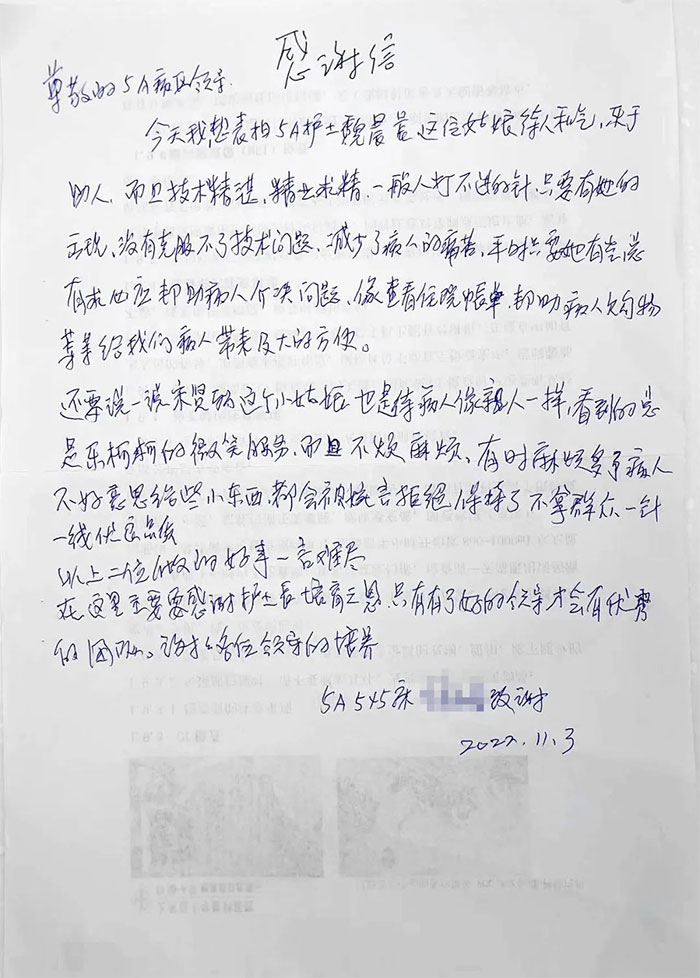 感谢信
尊敬的5A病区领导.
今天我想表扬5A护士魏晨昙这位姑娘待人和气,乐于
助人,而且技术精湛,精业求精,一般人打不进的针,只要有她的
出现、没有克服不了技术问题,减少了病人的痛苦,平时只要她有空总
有求必应帮助病人介决问题、像查看住院帐单,帮助病人购物
等等给我们病人带来及大的方便。
还要说一说宋贤 这个小姑娘也是待病人像親人一样,看到的总
是乐柯柯的微笑服务,而且不烦麻烦、有时麻烦多了病人
不好意思给些小东西都会被婉言拒绝,保持了不拿群众一针
一线优良品
以上二位做的好事一言难尽
在这里主要要感谢护士长培育之恩,只有有了好的领导才会有优秀
的团队。谢谢各位领导的培养
5A 545床 致谢
2022.11.3